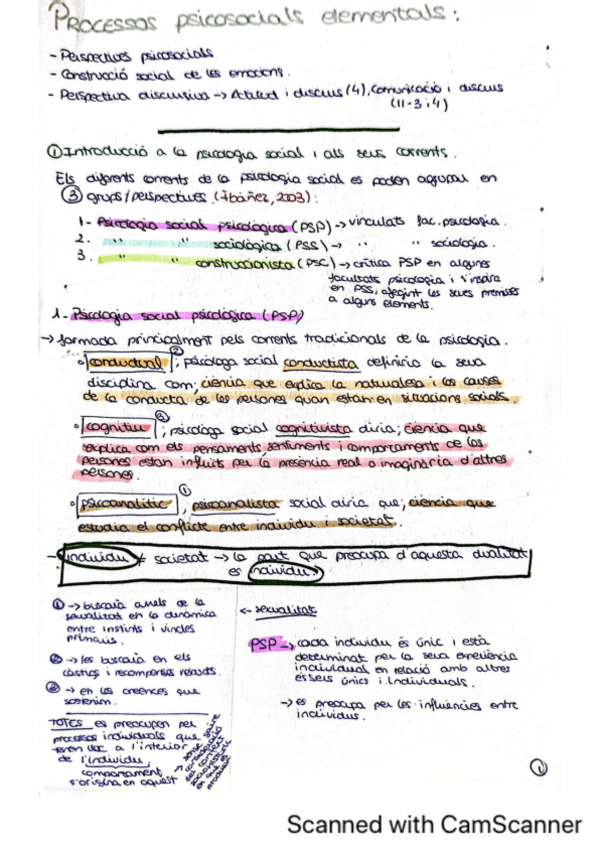 PROCESSOS psicosocials elementals:
- Perspectives psicosocials
- Construcció social de les emocions.
- Perspectiva discursiva → Actitud i discurs (4), comunicació i discurs
(11-3 i 4)
① Introducció a la psicologia social i als seus corrents.
Els diferents corrents de la psicologia social es poden agrupar en
③ grups/perspectives. (Ibáñez, 2003):
1- Psicologia social psicològica (PSP) → vinculats fac. psicologia.
2. " " sociològica (PSS) → " " sociologia.
3. " " construccionista (PSC) → crítica PSP en algunes
facultats psicologia i s'inspira
en PSS, afegint les seves premises
a alguns elements.
1. Psicologia social psicològica (PSP)
→ formada principalment pels corrents tradicionals de la psicologia.
② 
◦ conductual; psicòloga social conductista definiria la seva
disciplina com; ciència que explica la naturalesa i les causes
de la conducta de les persones quan estan en situacions socials.
③
◦ cognitiu; psicòloga social cognitivista diria; ciència que
explica com els pensaments, sentiments i comportaments de les
persones estan influïts per la presència real o imaginària d'altres
persones.
①
◦ psicoanalític, psicoanalista social diria que; ciència que
estudia el conflicte entre individu i societat.
- individu ≠ societat → la part que preocupa d'aquesta dualitat
és individu.
① → buscaria arrels de la
sexualitat en la dinàmica
entre instints i vincles
primaris.
② → les buscaria en els
càstigs i recompenses rebuts.
③ → en les creences que
sostenim.
TOTES es preocupen per
processos individuals que
tenen lloc a l'interior
de l'individu,
comportament
s'origina en aquest
→ sense
del context
en què es
<- sexualitat
PSP → cada individu és únic i està
determinat per la seva experiència
individual en relació amb altres
éssers únics i individuals.
→ es preocupa per les influències entre
individus.
①
Scanned with CamScanner